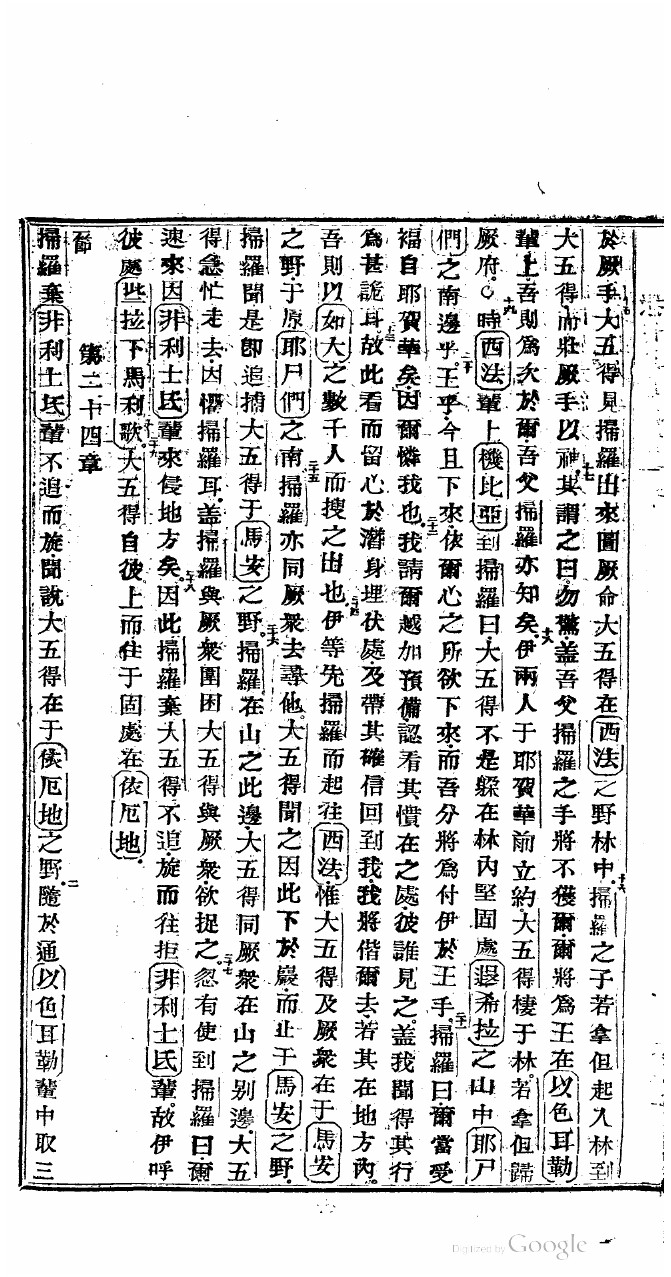 於厥手大五得見掃羅出來圖厥命大五得在西法之野林中十六掃羅之子若拿但起入林到
大五得而壯厥手以神十七其謂之曰勿驚蓋吾父掃羅之手將不獲爾爾將爲王在以色耳勒
輩上吾則爲次於爾吾父掃羅亦知矣十八伊兩人于耶賀華前立約大五得棲于林若拿但歸
厥府〇十九時西法輩上機比亞到掃羅曰大五得不是躱在林內堅固處退希拉之山中耶尸
們之南邊乎二十王乎今且下來依爾心之所欲下來而吾分將爲付伊於王手二十一掃羅曰爾當受
福自耶賀華矣因爾憐我也二十二我請爾越加預備認看其慣在之處彼誰見之蓋我聞得其行
爲甚詭耳二十三故此看而留心於潛身埋伏處及帶其確信回到我我將偕爾去若其在地方內
吾則以如大之數千人而搜之出也二十四伊等先掃羅而起往西法惟大五得及厥衆在于馬安
之野于原耶尸們之南二十五掃羅亦同厥衆去尋他大五得聞之因此下於巖而止于馬安之野
掃羅聞是卽追捕大五得于馬安之野二十六掃羅在山之此邊大五得同厥衆在山之別邊大五
得急忙走去因懼掃羅耳蓋掃羅與厥衆圍困大五得與厥衆欲捉之二十七忽有使到掃羅曰爾
速來因非利士氏輩來侵地方矣二十八因此掃羅棄大五得不追旋而往拒非利士氏輩故伊呼
彼處些拉下馬利歌二十九大五得自彼上而住于固處在依厄地
第二十四章
節
掃羅棄非利士氏輩不追而旋聞說大五得在于依厄地之野二隨於通以色耳勒輩中取三
Digitized by Google